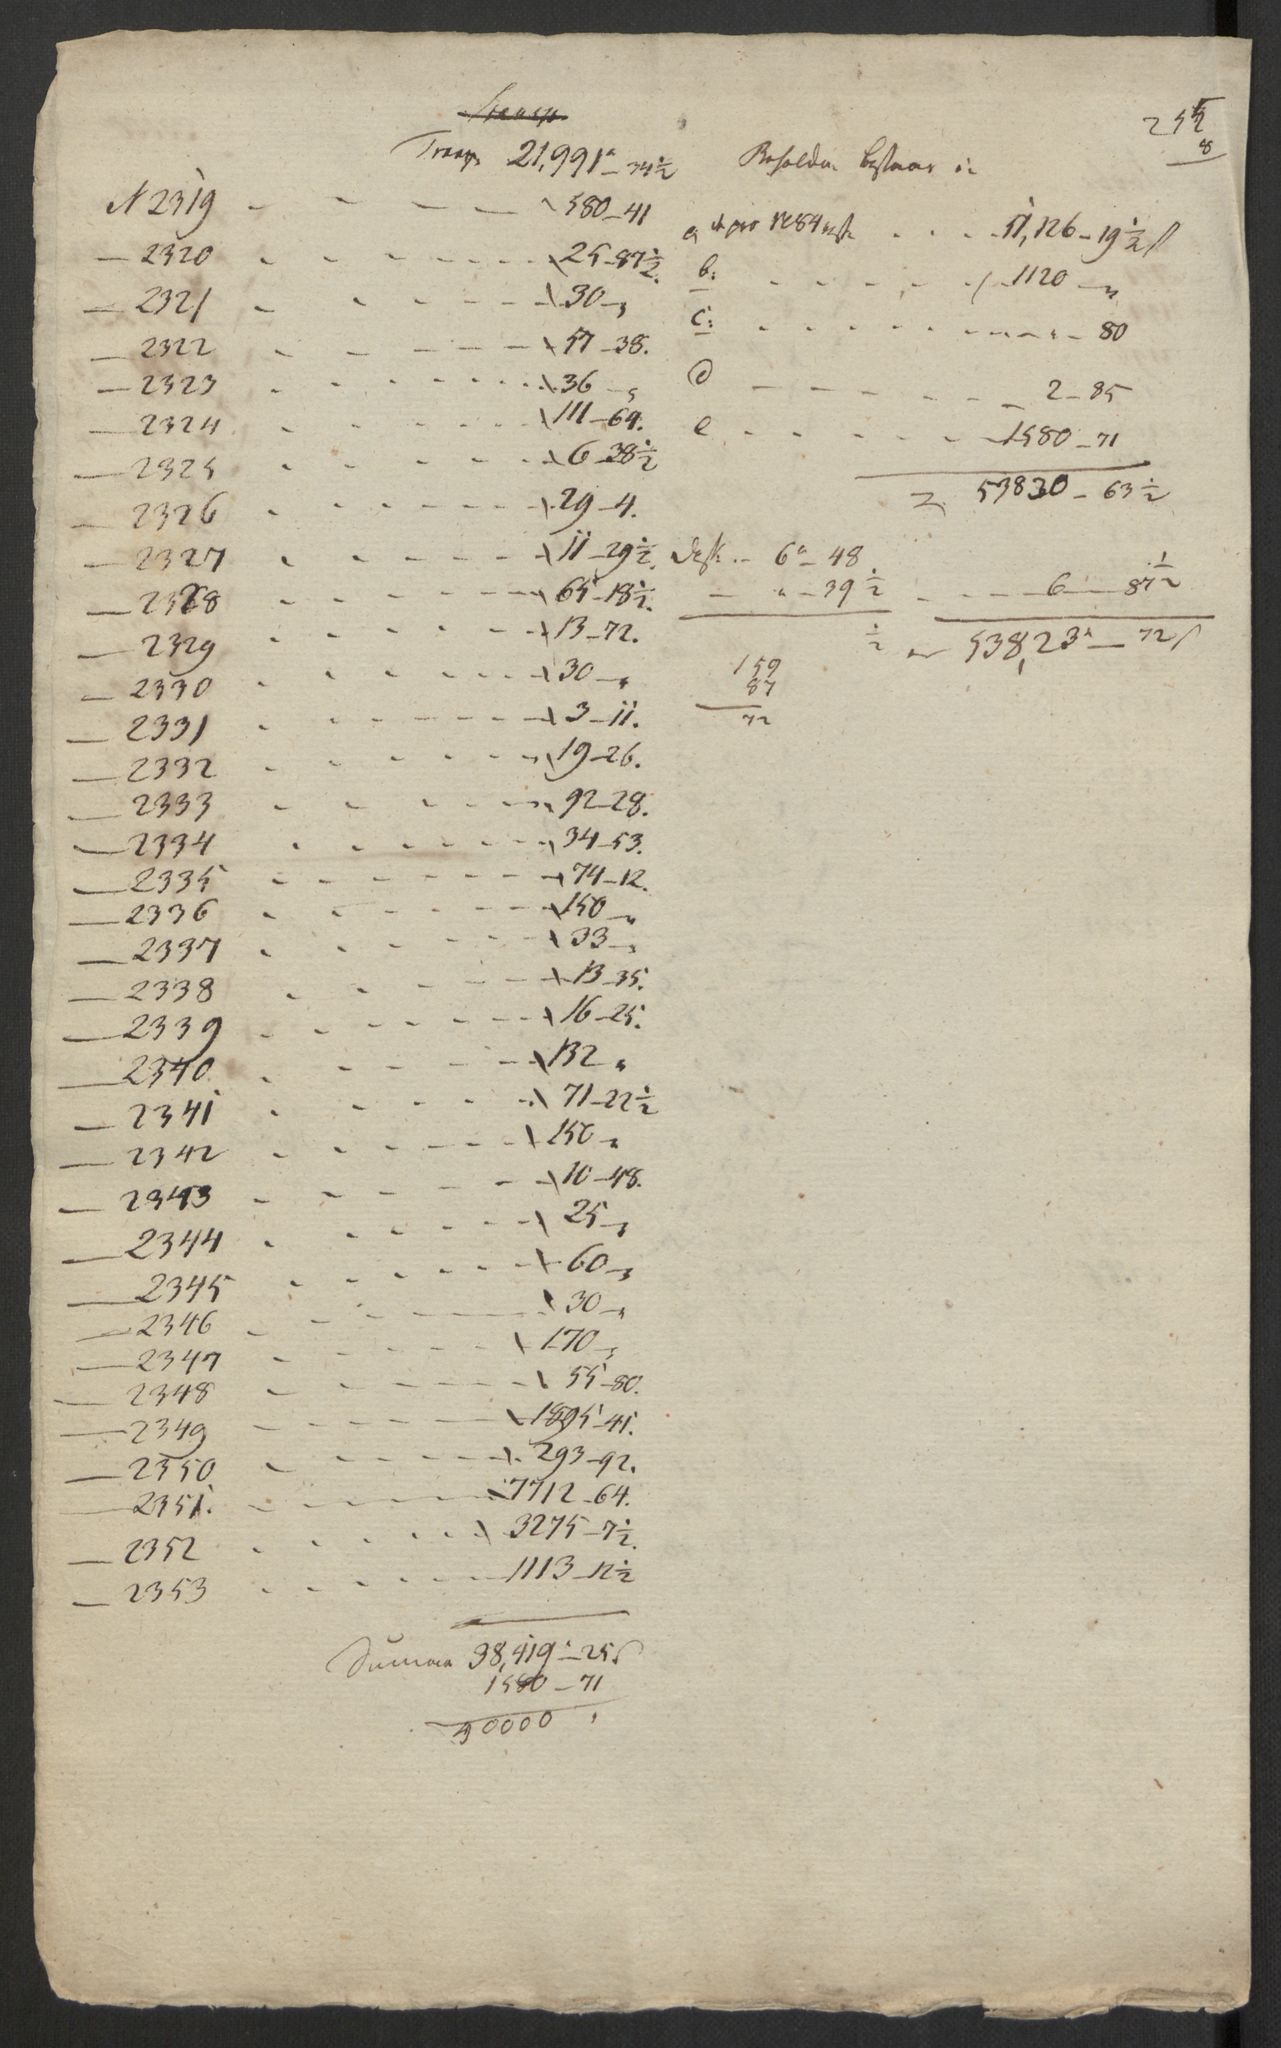 Transp. 21,991 - 34½
N 2319 - - - - 580 - 41
- 2320 - - - - 25 - 87½.
- 2321 - - - - 30 - "
- 2322 - - - - 57 - 38.
- 2323 - - - - 36 - "
- 2324 - - - - 111 - 64.
- 2325 - - - - 6 - 38½
- 2326 - - - - 29 - 4.
- 2327 - - - - 11 - 29½.
- 2328 - - - - 65 - 18½.
- 2329 - - - - 13 - 72.
- 2330 - - - - 30 - "
- 2331 - - - - 3 - 11.
- 2332 - - - - 19 - 26.
- 2333 - - - - 92 - 28.
- 2334 - - - - 34 - 53.
- 2335 - - - - 74 - 12.
- 2336 - - - - 150 - "
- 2337 - - - - 33 - "
- 2338 - - - - 13 - 35.
- 2339 - - - - 16 - 25.
- 2340 - - - - 132 "
- 2341 - - - - 71 - 22½
- 2342 - - - - 150 - "
- 2343 - - - - 10 - 48.
- 2344 - - - - 25 - "
- 2345 - - - - 60 - "
- 2346 - - - - 30 - "
- 2347 - - - - 170 - "
- 2348 - - - - 55 - 80.
- 2349 - - - - 1895 - 41.
- 2350 - - - - 293 - 92.
- 2351. - - - - 7712 - 64.
- 2352 - - - - 3275 - 7½.
- 2353 - - - - 1113 - 12½
Summa 38,419 - 25
1580 - 71
40000 "
Beholdn: bestaar i
a - - - 51,126 - 19½
b: - - - 1120 - "
c: - - - 80
d - - - 2 - 85
e - - - 1580 - 71
53830 - 63½
6 - 48
" - 39½ - - - 6 - 87½
½ 538,23 - 72
159
87
72